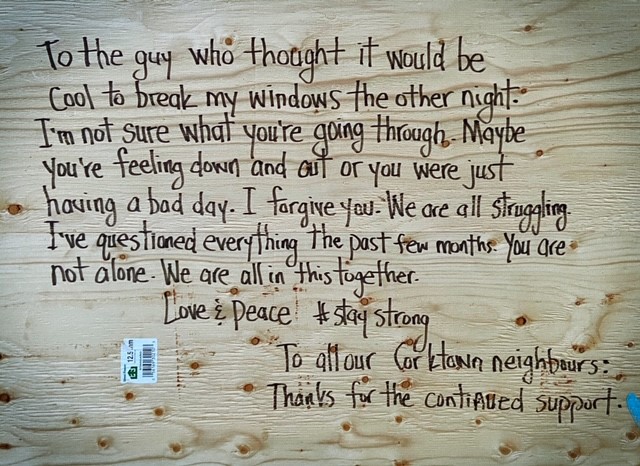 To the guy who thought it would be
Cool to break my windows the other night.
I'm not sure what you're going through. Maybe
you're feeling down and out or you were just
having a bad day. I forgive you. We are all struggling.
I've questioned everything the past few months. You are
not alone. We are all in this together.
Love & Peace #stay strong
12.5
To all our Corktown neighbours:
Thanks for the continued support.